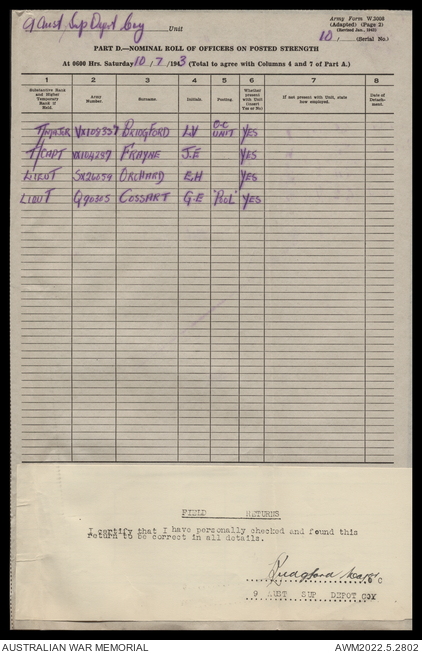 9 Aust Sup Depot Coy Unit
Army Form W.3008
(Adapted) (Page 2)
(Revised Jan., 1943)
10/ (Serial No.)
PART D.—NOMINAL ROLL OF OFFICERS ON POSTED STRENGTH
At 0600 Hrs. Saturday 10/7/1943 (Total to agree with Columns 4 and 7 of Part A.)
1 2 3 4 5 6 7 8
Substantive Rank and Higher Temporary Rank if Held. Army Number. Surname. Initials. Posting. Whether present with Unit (Insert Yes or No) If not present with Unit, state how employed. Date of Detachment.
T/MAJOR VX108337 BRIDGFORD L.V O.C UNIT YES
T/CAPT VX104297 FRAYNE J.E YES
LIEUT SX26059 ORCHARD E.H YES
LIEUT Q90305 COSSART G.E "POOL" YES
FIELD RETURNS
I certify that I have personally checked and found this
return to be correct in all details.
Bridgford Major O C
9 AUST SUP DEPOT COY
AUSTRALIAN WAR MEMORIAL AWM2022.5.2802